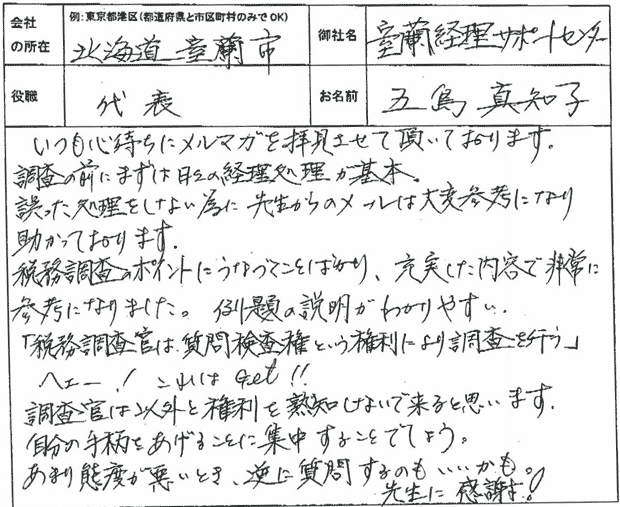 会社の所在 例:東京都港区(都道府県と市区町村のみでOK) 北海道 室蘭市 御社名 室蘭経理サポートセンター
役職 代表 お名前 五島 真知子
いつも心待ちにメルマガを拝見させて頂いております。
調査の前にまずは日々の経理処理が基本。
誤った処理をしない為に先生からのメールは大変参考になり
助かっております。
税務調査のポイントにうなづくことばかり、充実した内容で非常に
参考になりました。例題の説明がわかりやすい。
「税務調査官は質問検査権という権利により調査を行う」
ヘェー! これはGet!!
調査官は以外と権利を熟知しないで来ると思います。
自分の手柄をあげることに集中することでしょう。
あまり態度が悪いとき、逆に質問するのもいいかも。
先生に感謝よ!